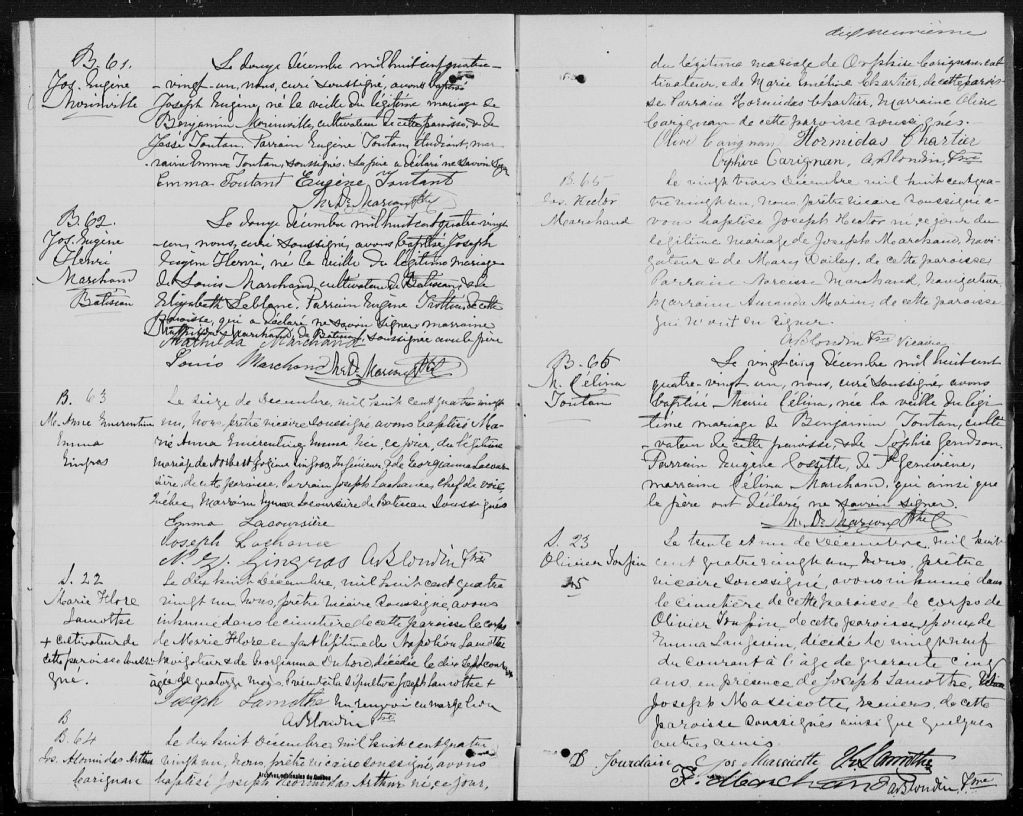 B. 61.
Jos. Eugène
Morinville
Le douze décembre mil huit cent quatre-
-vingt-un, nous, curé soussigné, avons baptisé
Joseph Eugène, né la veille du légitime mariage de
Benjamin Morinville, cultivateur de cette paroisse, & de
Toutan. Parrain Eugène Toutan, étudiant, mar-
raine Emma Toutan, soussignés. Le père a déclaré ne savoir signer
Emma Toutant Eugène Toutant
B. 62
Jos. Eugène
Henri
Marchand
Batiscan
Le douze décembre mil huit cent quatre vingt
un, nous, curé soussigné, avons baptisé Joseph
Eugène Henri, né la veille du légitime mariage
de Louis Marchand, cultivateur de Batiscan, & de
Elizabeth Leblanc. Parrain Eugène Trottier, de cette
paroisse, qui a déclaré ne savoir signer, marraine
Mathilda Marchand, de Batiscan, soussignée avec le père
Mathilda Marchand
Louis Marchand
B. 63
M. Anne Emerentine
Emma
Gingras
Le seize de décembre, mil huit cent quatre vingt
un, nous, prêtre vicaire soussigné avons baptisé Ma-
rie Anna Emerentine Emma née, ce jour, du légitime
mariage de Norbert Gingras, Ingénieur & de Georgianna Lacour-
sière, de cette paroisse. Parrain Joseph Lachance, chef de
Québec, Marraine Emma Lacoursière de Batiscan soussignés
Emma Lacoursière
Joseph Lachance
Gingras A. Blondin Ptre
S. 22
Marie Flore
Lamothe
+ cultivateur de
cette paroisse
Le dix huit décembre, mil huit cent quatre
vingt un nous, prêtre vicaire soussigné, avons
inhumé dans le cimetière de cette paroisse le corps
de Marie Flore enfant légitime de Napoléon Lamothe
navigateur & de Georgianna Duhord, décédée le dix sept courant
âgée de quatorze mois. Présent à la sépulture Joseph Lamothe +
Joseph Lamothe un renvoi en marge bon
A Blondin Ptre
B
B. 64
Jos. Hormidas Arthur
Carignan
Le dix huit Décembre, mil huit cent quatre
vingt un, nous, prêtre vicaire soussigné, avons
baptisé Joseph Hormidas Arthur né, ce jour,
Archives nationales du Québec
dix neuvième
du légitime mariage de Orphise Carignan, cul-
tivateur, & de Marie Chartier, de cette parois-
se Parrain Hormidas Chartier, Marraine Olive
Carignan de cette paroisse soussignés.
Olive Carignan Hormidas Chartier
Orphise Carignan, A. Blondin, Ptre
B. 65
Jos. Hector
Marchand
Le vingt trois Décembre mil huit cent qua-
tre vingt un, nous prêtre vicaire soussigné a-
vons baptisé Joseph Hector né, ce jour du
légitime mariage de Joseph Marchand, Navi-
gateur & de Mary Dailey, de cette paroisse
Parraine Narcisse Marchand, Navigateur
Marraine Amanda Morin, de cette paroisse
qui n'ont su signer.
A Blondin Ptre Vicaire
B. 66
M. Célina
Toutan
Le vingt cinq décembre mil huit cent
quatre-vingt un, nous, curé soussigné, avons
baptisé Marie Célina, née la veille du légi
time mariage de Benjamin Toutan, culti-
-vateur de cette paroisse, & de Sophie Gendron.
Parrain Eugène Cossette, de Ste Geneviève,
marraine Célina Marchand, qui ainsi que
le père ont déclaré ne savoir signer
S. 23
Olivier Toupin
45
Le trente et un de Décembre, mil huit
cent quatre vingt un, nous, prêtre
vicaire soussigné, avons inhumé dans
le cimetière de cette paroisse le corps de
Olivier Toupin de cette paroisse, époux de
Emma Langevin, décédé le vingt neuf
du courant à l'âge de quarante cinq
ans en présence de Joseph Lamothe,
Joseph Massicotte, de cette
paroisse soussignés ainsi que quelques
autres amis.
D Jourdain Jos Massicotte Lamothe
F. Marchand A Blondin, Ptre